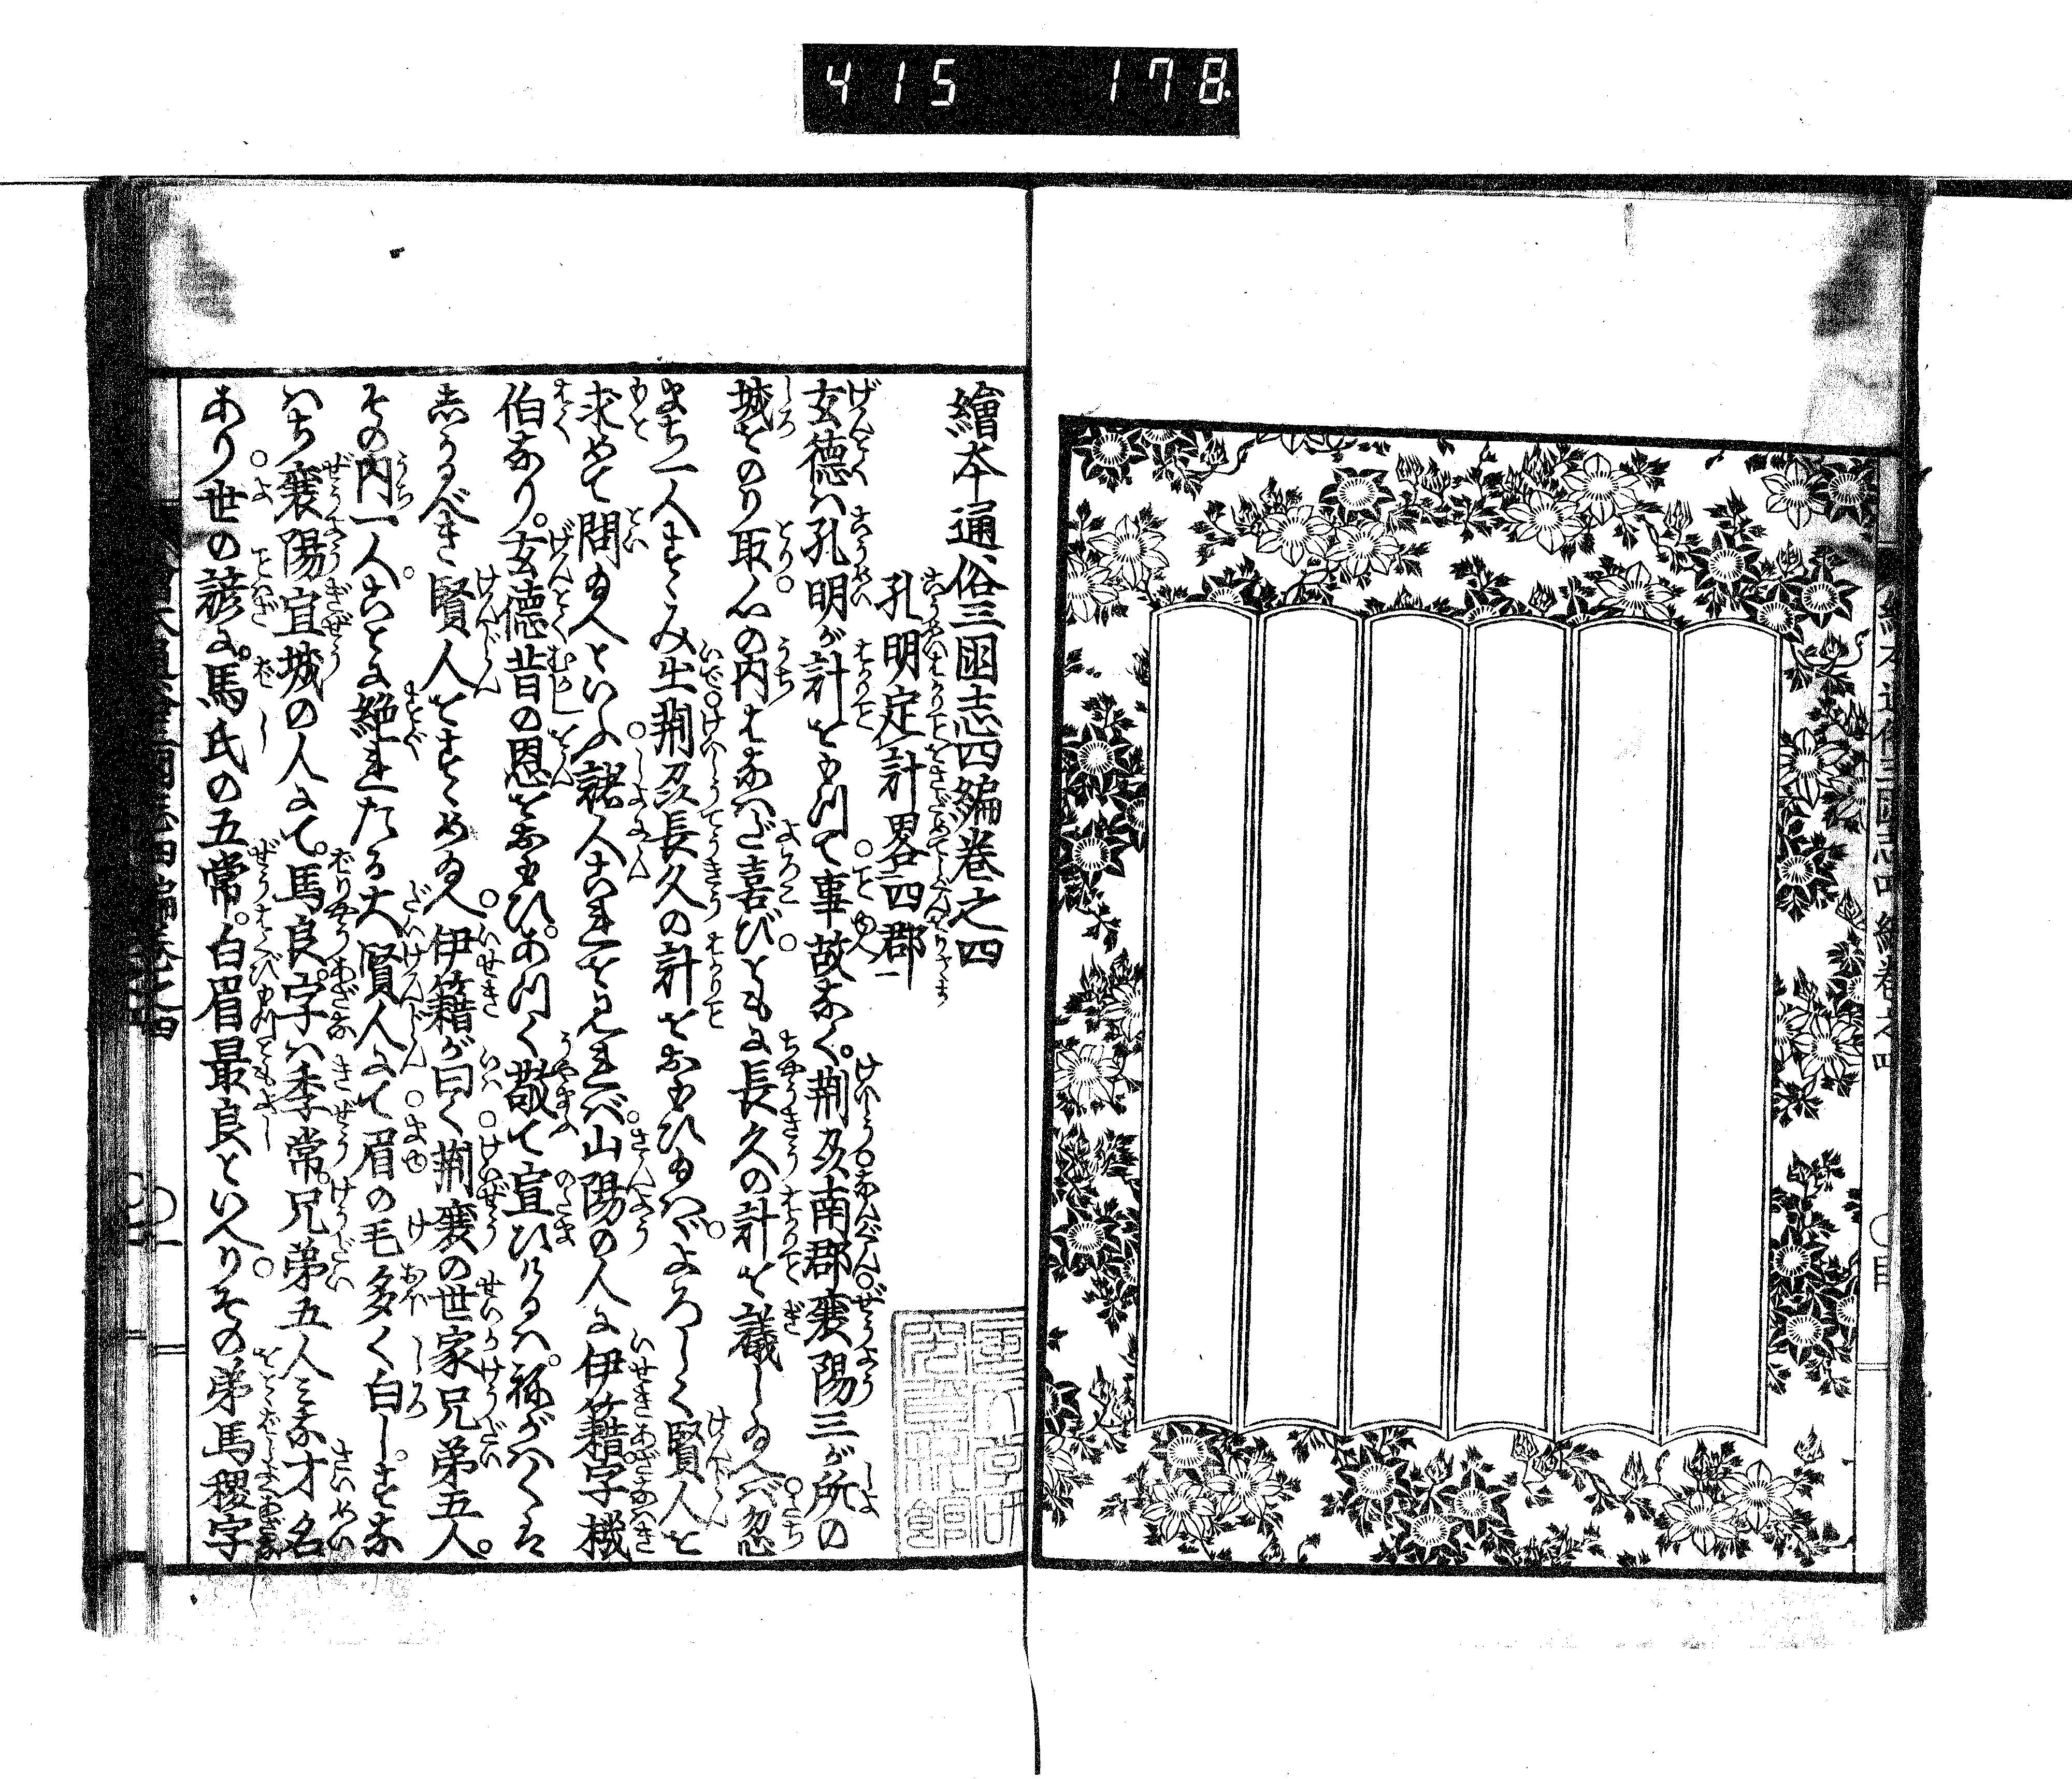 415 178
繪本通俗三国志四編巻之四
孔明定計畧四郡
玄德ハ孔明が計をもつて事故なく。荊州南郡襄陽三が所の
城をのり取心の内はなハだ喜びともに長久の計を議し給へバ忽
まち一人すゝみ出荊州長久の計をおもひ給ハゞよろしく賢人を
求めて問給へといふ諸人これを見れバ山陽の人に伊籍字機
伯なり。玄德昔の恩をおもひ。あつく敬て宣ひけるハ。
志かるべき賢人をすゝめ給へ。伊籍が曰く荊襄の世家兄弟五人。
その内一人。ことに絶れたる大賢人にて眉の毛多く白し。すな
ハち襄陽宜城の人にて。馬良。字ハ季常。兄弟五人ミな才名
あり世の諺に。馬氏の五常。白眉最良といへりその弟馬稷字